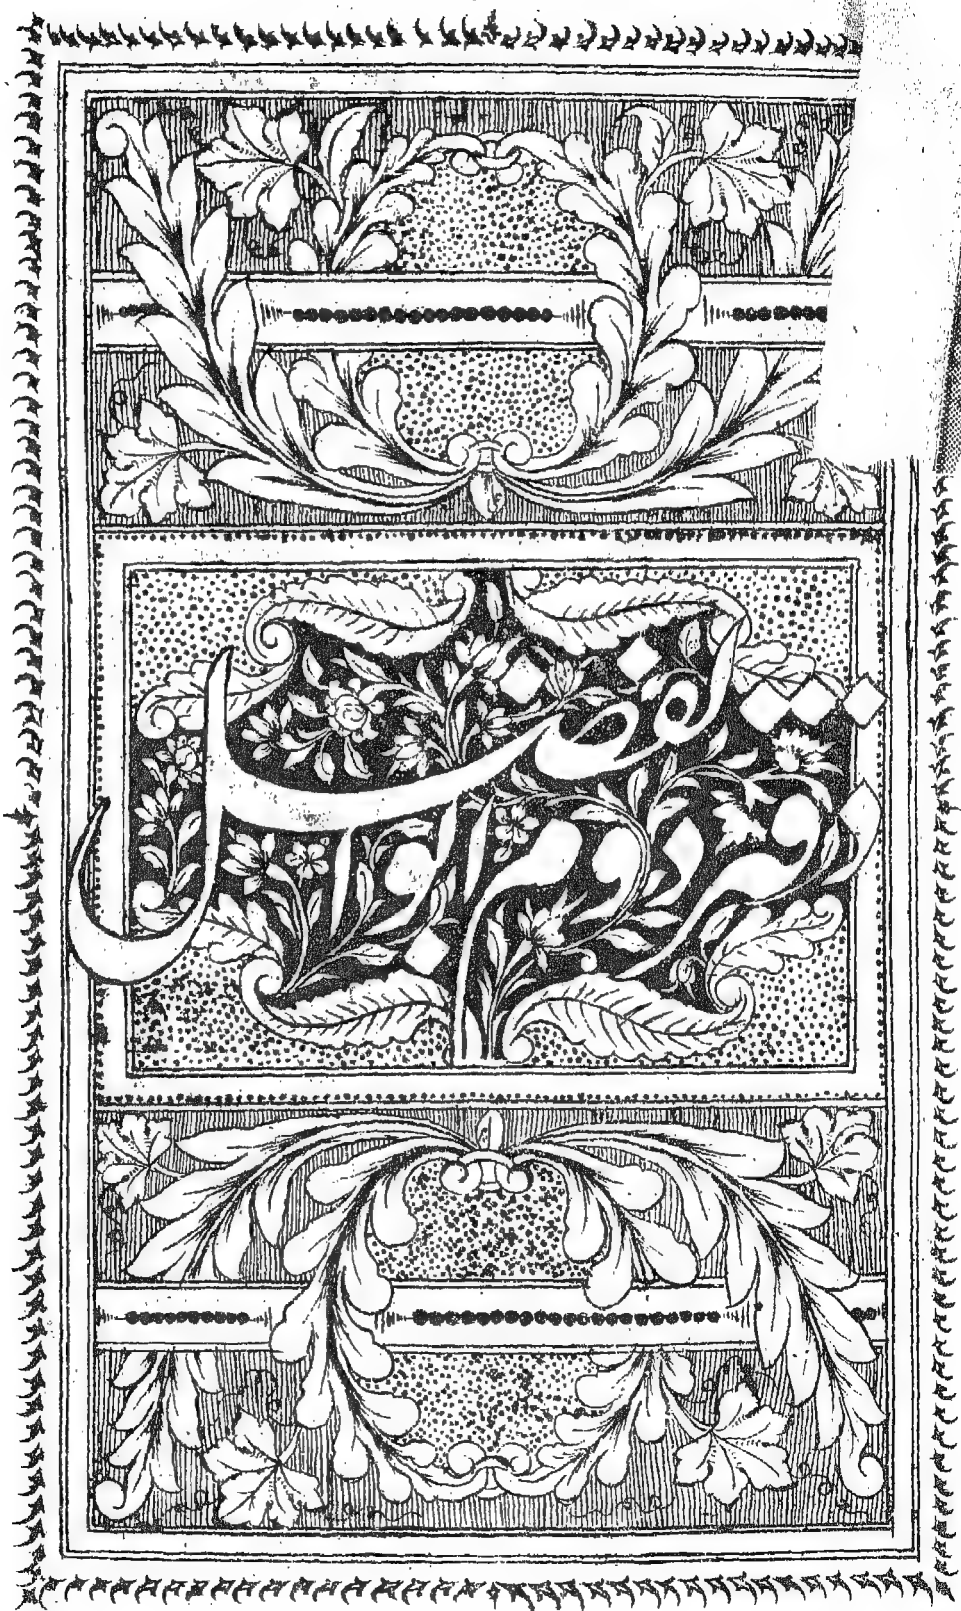 دفتر دوم ابوالفضل